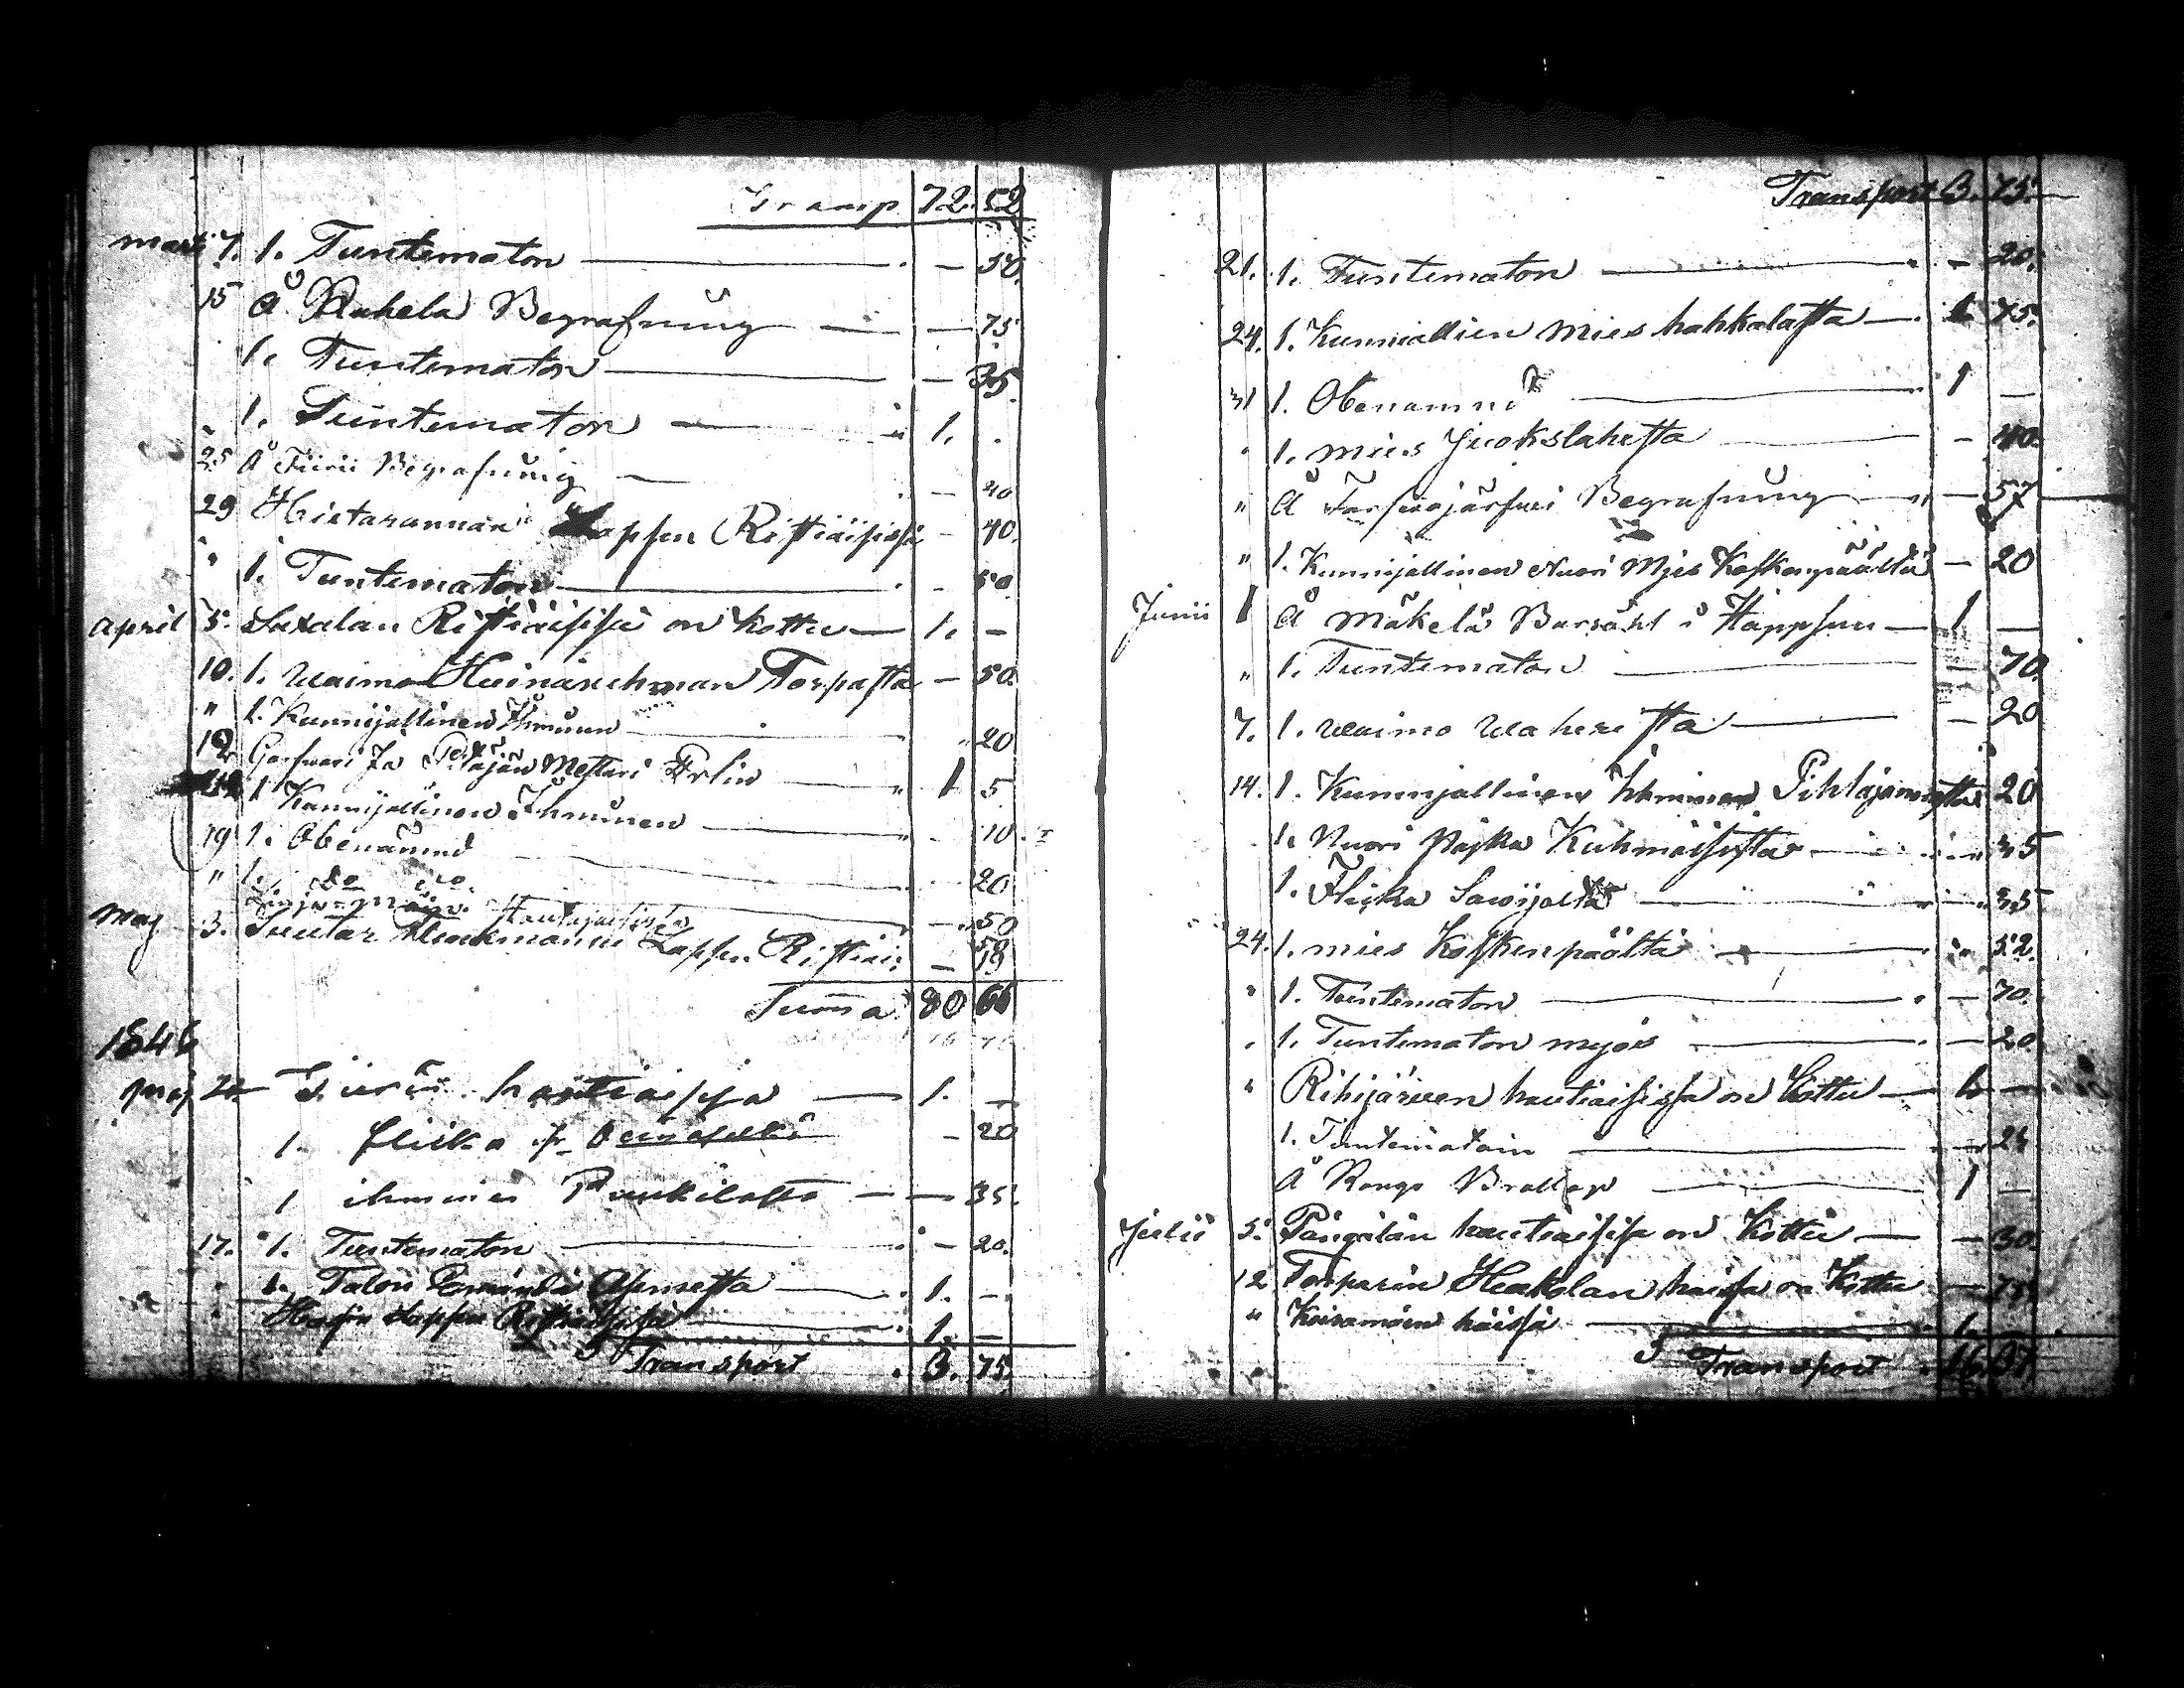 Transp 72. 52
mars 7. 1. Tuntematon — . — 50.
15 Å Rahela Begrafning — — 75.
1. Tuntematon — — 35.
1. Tuntematon — " 1. .
25 Å Tiirii Begrafning — . — 40
29 Hietarannan Lapsen Ristiäisissä — 40.
" 1. Tuntematon — . — 50.
April 5. Saxalan Ristiäisissä on kottu — 1. —
10. 1. Waimo Heinärehman Torpasta — 50.
" 1. Kunnijallinen Ihminen — " 20
12 ja Pitäjän Mestari — " 1 5
1 Kunnijallinen Ihminen — " . 10
19 1. Obenämnd
" 1. do do. 20
— 50
May 3. Suutar Lapsen Ristiäi: — 59
Summa 80 66
1846
maj 20 Tiirii hautiaissa — 1. —
1. flicka fr — 20
1 ihminen — — 35.
17. " 1. Tuntematon — . — 20.
" 1. Talon Emändä — . 1. —.
" Lapsen Ristiäisissä — . 1. —
Transport . 3. 75.
Transport 3. 75.
21. 1. Tuntematon — " — 20.
24. 1. Kunniallien mies hahkalasta — . 1 75.
31 1. Obenämnd — 1 —
" 1. mies Juokslahesta — — 40.
" Å Begrafning — " — 57
" 1. Kunnijallinen Nuori Mjes Koskenpäältä — 20
Junii 1 Å Mäkelä Barsöhl i Häppsuu — 1 —
" 1. Tuntematon — — 70.
7. 1. Waimo Waherista — — 20
14. 1. Kunnijallinen Ihminen Pihlajamäysta 20
1. Nuori Pojka Kuhmoisista — " 35
1. Flicka Sawijalta — " 35
24. 1. mies Koskenpäältä — . " 52.
" 1. Tuntematon — " — 70.
" 1. Tuntematon myös — . — 20.
" Rihijärwen hautiaisissa on kottu — —
1. Tuntematoin —
Å Rongo Brollop — 1 —
Julii 5. Pängälän hautiaisissa on Kottu — — 30.
12 Torparin Heakolan häissä on Kottu — 75.
" Koiramäen häissä — 1. — .
Transport . 16. 37.